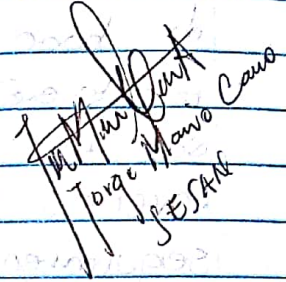 Jorge Mario Cano
SESAN